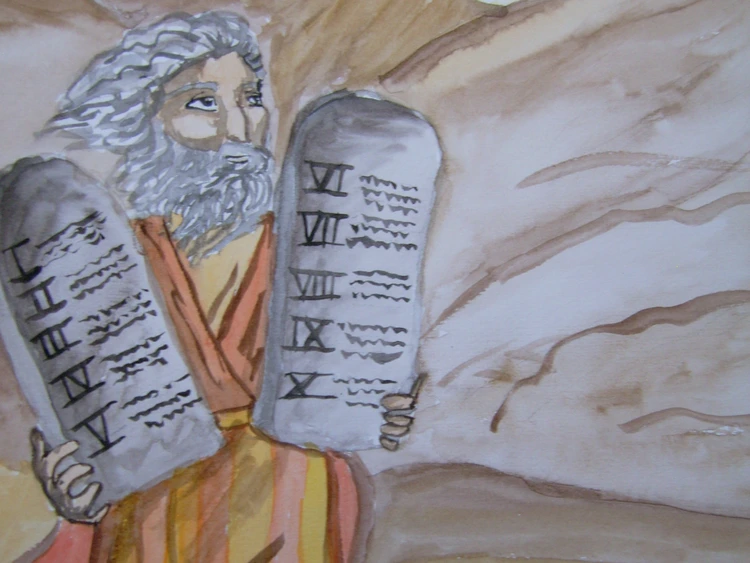 I
II
III
IV
VI
VI
VII
VIII
IX
X